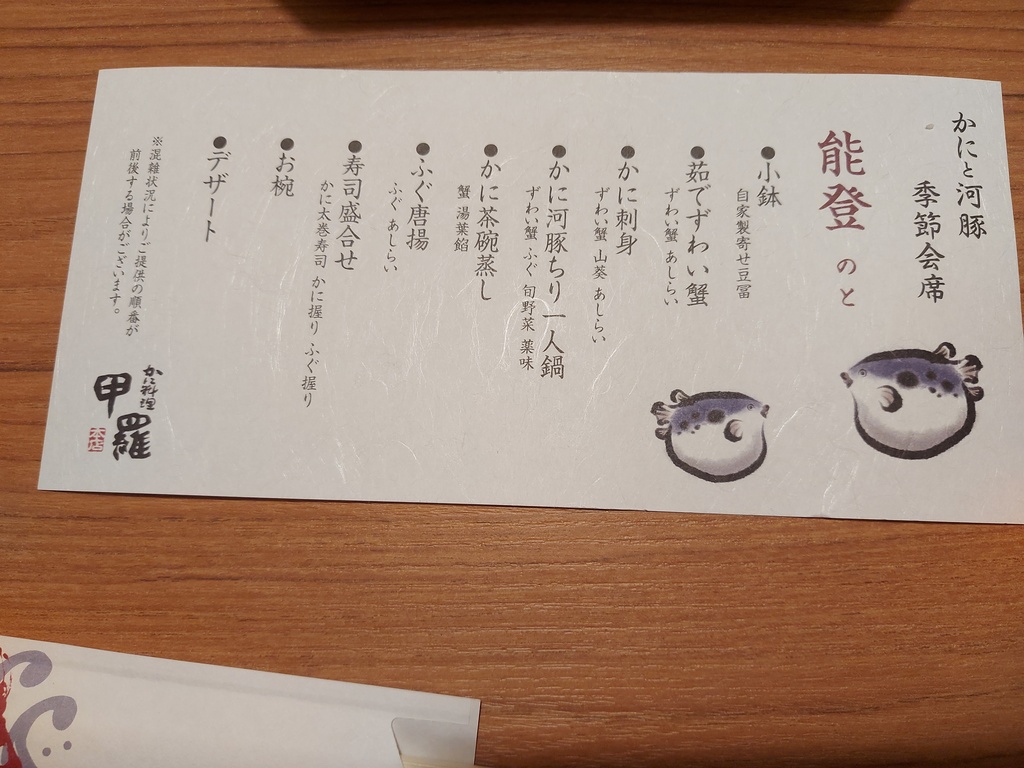 かにと河豚
季節会席
能登 のと
●小鉢
自家製寄せ豆冨
●茹でずわい蟹
ずわい蟹 あしらい
●かに刺身
ずわい蟹 山葵 あしらい
●かに河豚ちり一人鍋
ずわい蟹 ふぐ 旬野菜 薬味
●かに茶碗蒸し
蟹 湯葉餡
●ふぐ唐揚
ふぐ あしらい
●寿司盛合せ
かに太巻寿司 かに握り ふぐ握り
●お椀
●デザート
※混雑状況によりご提供の順番が
前後する場合がございます。
かに料理
甲羅
本店